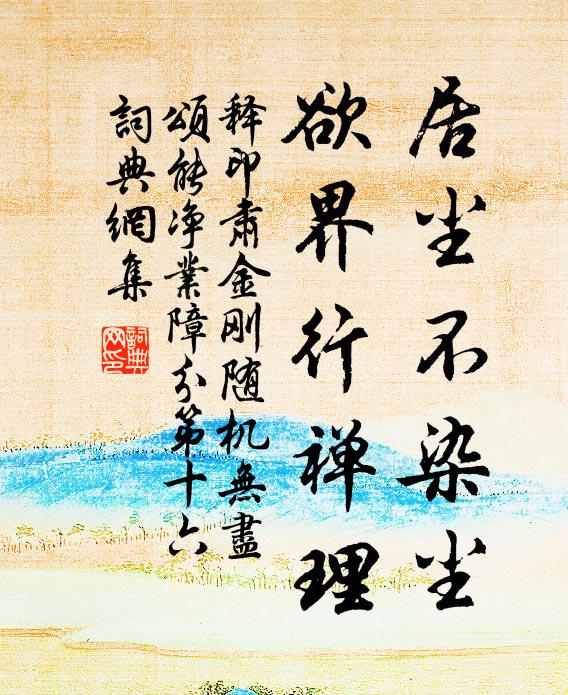 居尘不染尘
欲界行禅理
释印肃金刚随机無盡
頌能净業障分第十六
詞典網集
詞典
网印